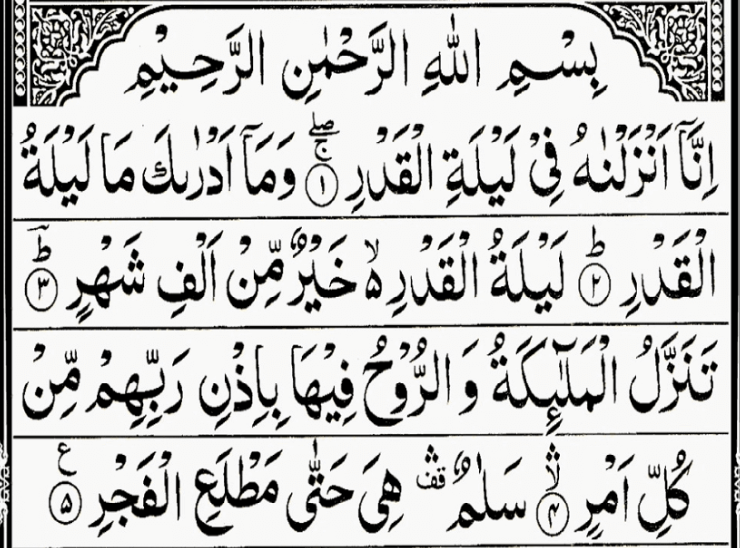 بِسْمِ اللهِ الرَّحْمٰنِ الرَّحِيْمِ
اِنَّاۤ اَنْزَلْنٰهُ فِيْ لَيْلَةِ الْقَدْرِ ۚۖ ١ وَمَاۤ اَدْرٰىكَ مَا لَيْلَةُ
الْقَدْرِ ؕ ٢ لَيْلَةُ الْقَدْرِ ۙ۵ خَيْرٌ مِّنْ اَلْفِ شَهْرٍ ؕ ٣
تَنَزَّلُ الْمَلٰٓئِكَةُ وَالرُّوْحُ فِيْهَا بِاِذْنِ رَبِّهِمْ مِّنْ
كُلِّ اَمْرٍ ۙ ٤ سَلٰمٌ قف هِيَ حَتّٰى مَطْلَعِ الْفَجْرِ ع ٥